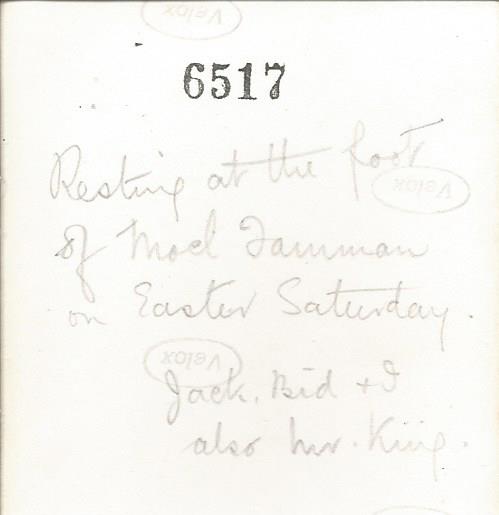 Velox
6517
Resting at the foot
Velox
of Moel Famman
on Easter Saturday.
Velox
Jack, Bid + I
also Mr. King.